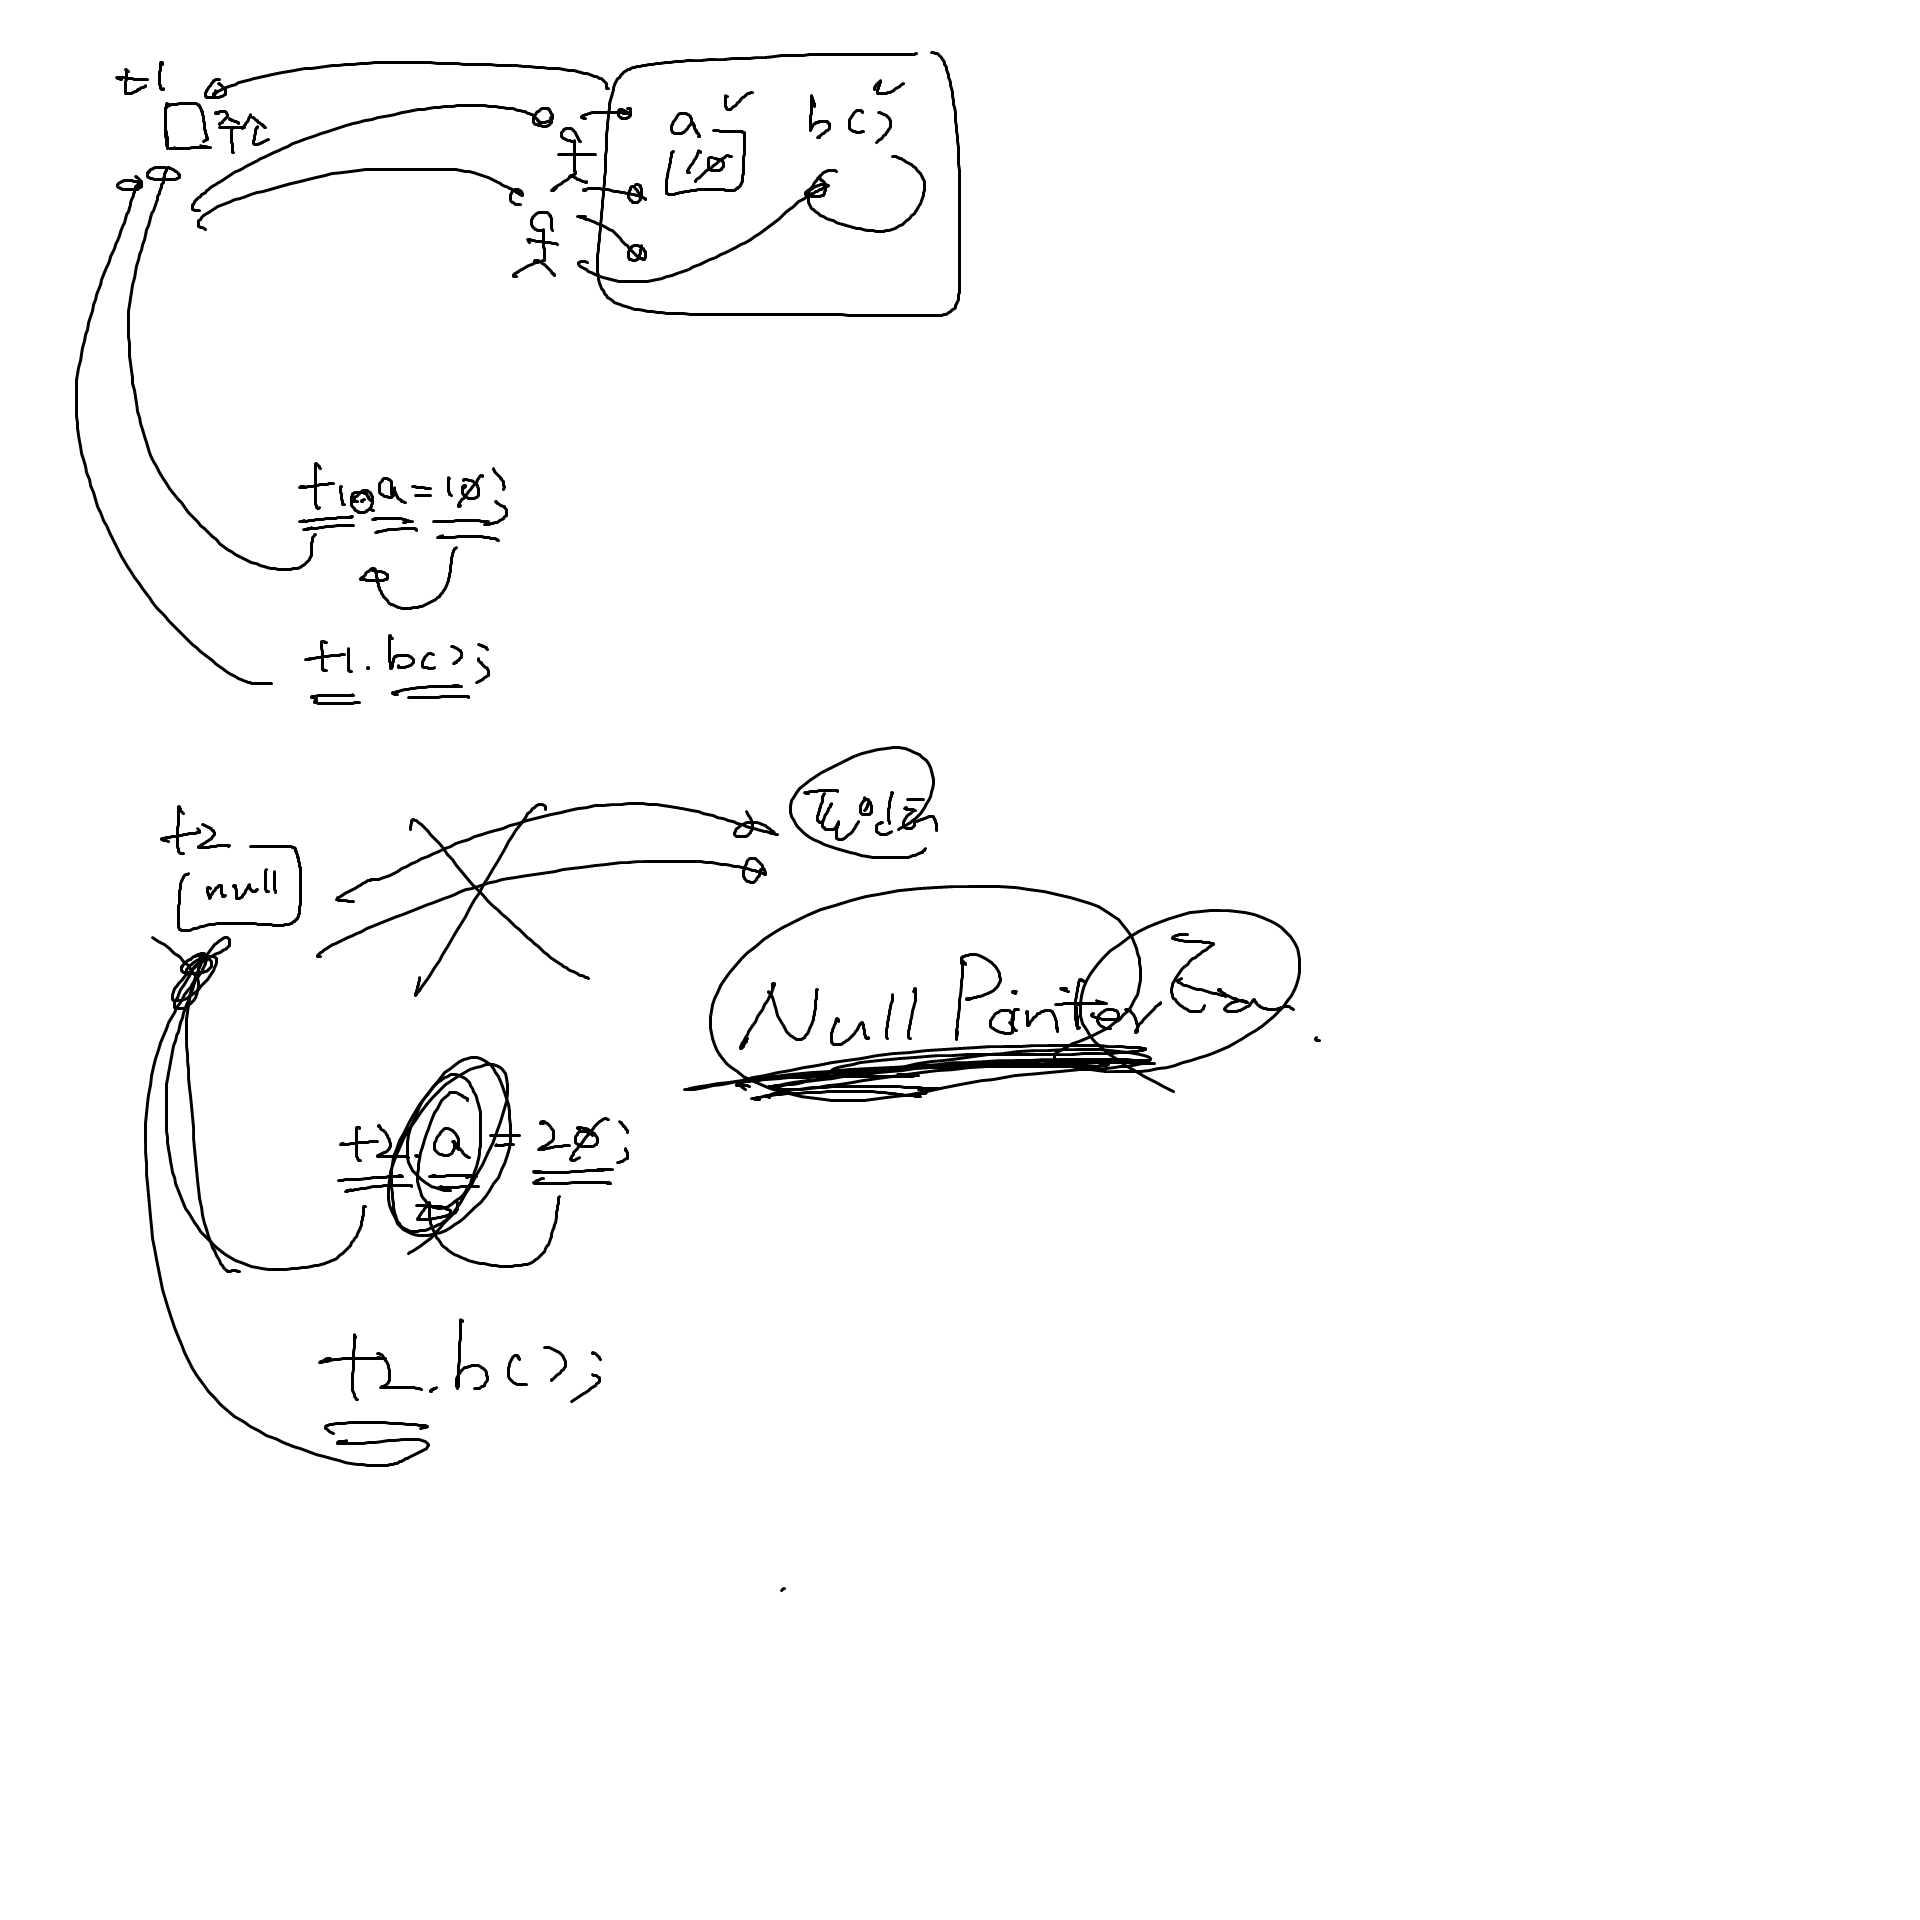 t1
a b()
10
t1.a=10;
t1.b();
t2
null
Null Pointer
t2.a=20;
t2.b();